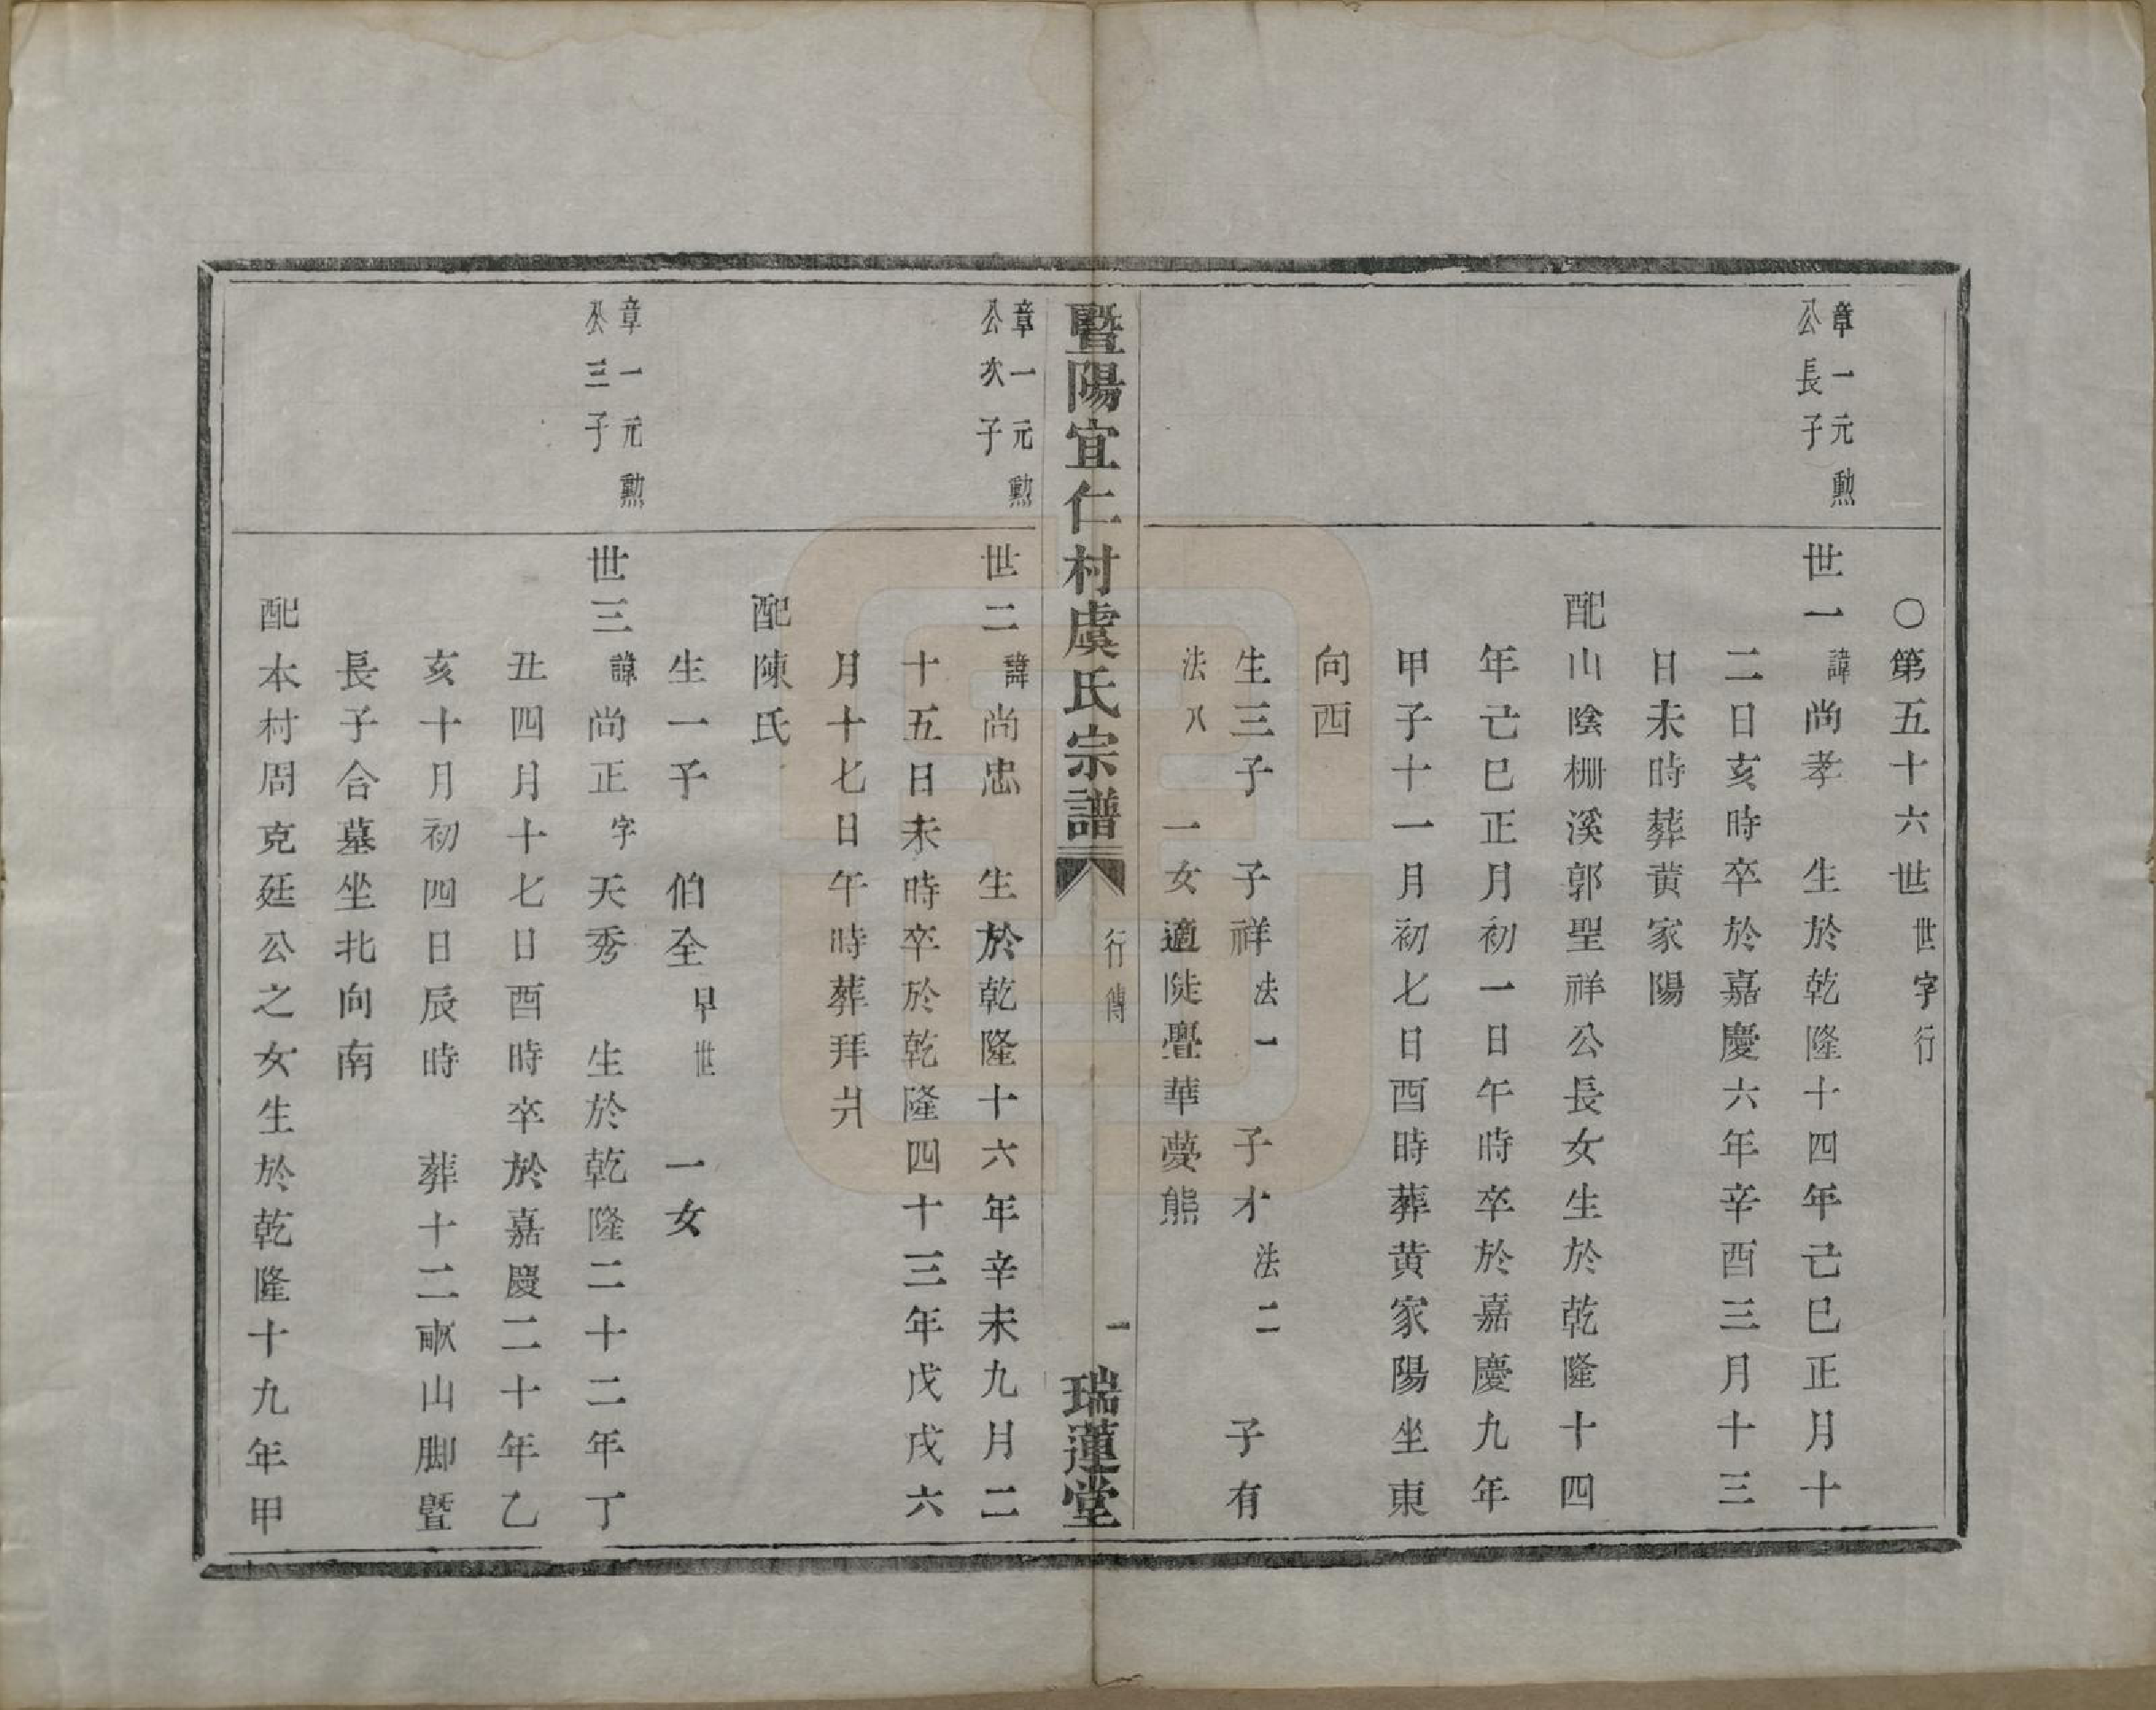 〇第五十六世世字行
章一元勲
公長子
世一諱尚孝　生於乾隆十四年己巳正月十
二日亥時卒於嘉慶六年辛酉三月十三
日未時葬黄家陽
配山陰柵溪郭聖祥公長女生於乾隆十四
年己巳正月初一日午時卒於嘉慶九年
甲子十一月初七日酉時葬黄家陽坐東
向西
生三子　子祥法一　子才法二　子有
法八　一女適陡亹華夢熊
暨陽宜仁村虞氏宗譜　行傳　一　瑞蓮堂
章一元勲
公次子
世二諱尚忠　生於乾隆十六年辛未九月二
十五日未時卒於乾隆四十三年戊戌六
月十七日午時葬拜爿
配陳氏
生一子　伯全早世　一女
章一元勲
公三子
世三諱尚正字天秀　生於乾隆二十二年丁
丑四月十七日酉時卒於嘉慶二十年乙
亥十月初四日辰時　葬十二畝山脚曁
長子合墓坐北向南
配本村周克廷公之女生於乾隆十九年甲